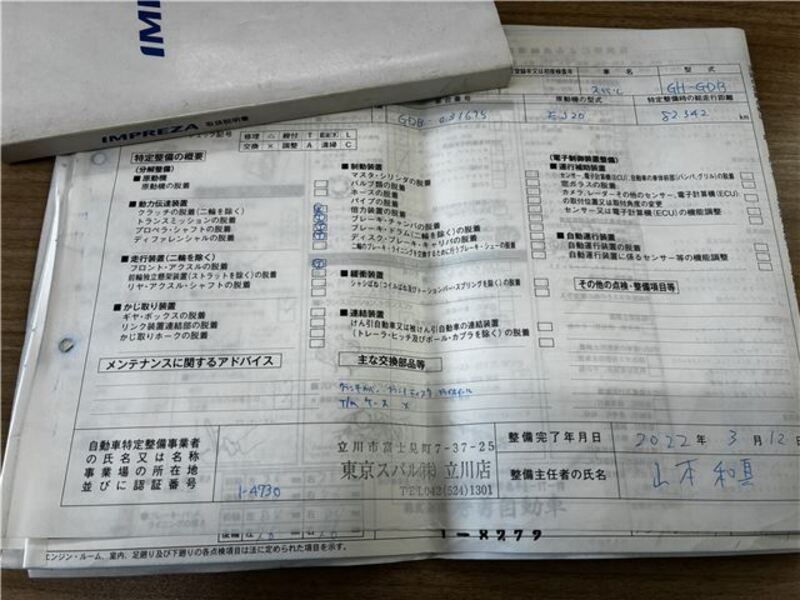 IMPREZA 取扱説明書
車名
型式
スバル
GH-GDB
原動機の型式
特定整備時の総走行距離
GDB-031675
EJ20
82342 km
修理 △ 締付 T
交換 × 調整 A 清掃 C
特定整備の概要
(分解整備)
■原動機
原動機の脱着
■動力伝達装置
クラッチの脱着(二輪を除く)
トランスミッションの脱着
プロペラ・シャフトの脱着
ディファレンシャルの脱着
■走行装置(二輪を除く)
フロント・アクスルの脱着
前輪独立懸架装置(ストラットを除く)の脱着
リヤ・アクスル・シャフトの脱着
■かじ取り装置
ギヤ・ボックスの脱着
リンク装置連結部の脱着
かじ取りホークの脱着
■制動装置
マスタ・シリンダの脱着
バルブ類の脱着
ホースの脱着
パイプの脱着
倍力装置の脱着
ブレーキ・チャンバの脱着
ブレーキ・ドラム(二輪を除く)の脱着
ディスク・ブレーキ・キャリパの脱着
二輪のブレーキ・ライニングを交換するために行うブレーキ・シューの脱着
■緩衝装置
シャシばね(コイルばね及びトーションバー・スプリングを除く)の脱着
■連結装置
けん引自動車又は被けん引自動車の連結装置
(トレーラ・ヒッチ及びボール・カプラを除く)の脱着
(電子制御装置整備)
■運行補助装置
センサー、電子計算機(ECU)、自動車の車体前部(バンパ、グリル)の脱着
窓ガラスの脱着
カメラ、レーダーその他のセンサー、電子計算機(ECU)
の取付位置又は取付角度の変更
センサー又は電子計算機(ECU)の機能調整
■自動運行装置
自動運行装置の脱着
自動運行装置に係るセンサー等の機能調整
その他の点検・整備項目等
メンテナンスに関するアドバイス
主な交換部品等
T/M ケース ×
自動車特定整備事業者
の氏名又は名称
事業場の所在地
並びに認証番号
1-4730
立川市富士見町7-37-25
東京スバル(株) 立川店
TEL042(524)1301
整備完了年月日
2022年 3月 12日
整備主任者の氏名
山本 和真
1-8279
エンジン・ルーム、室内、足廻り及び下廻りの各点検項目は法に定められた項目を示す。